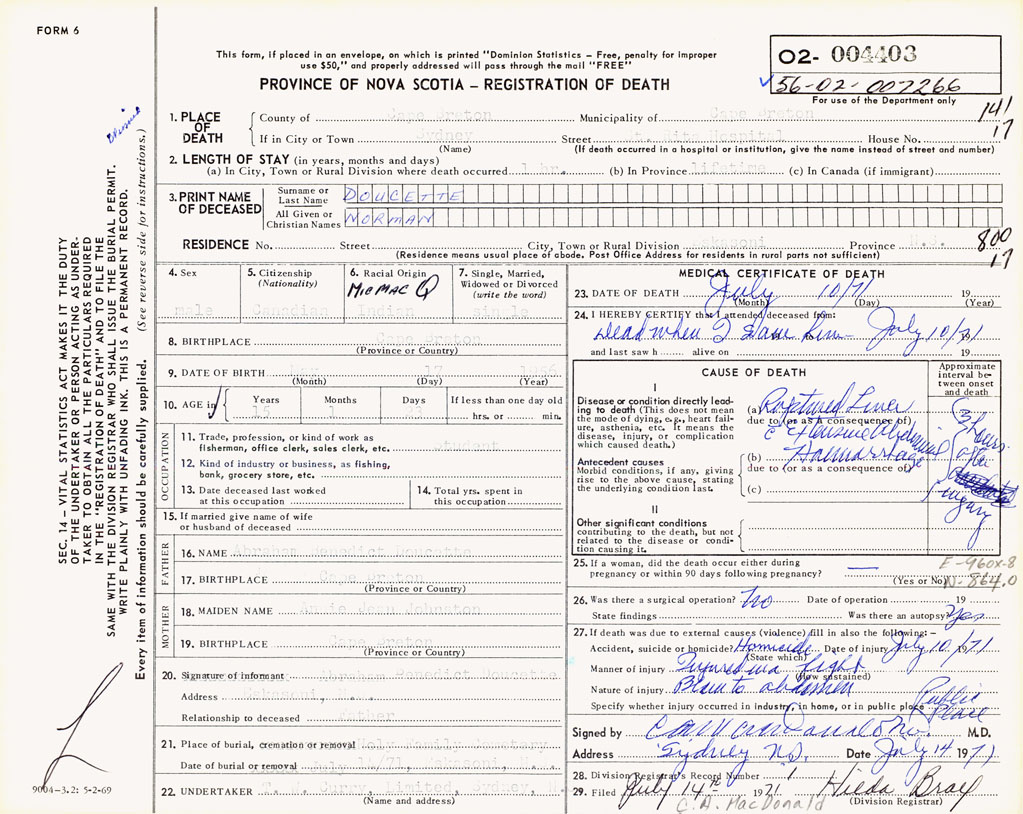 FORM 6
This form, if placed in an envelope, on which is printed "Dominion Statistics – Free, penalty for improper
use $50," and properly addressed will pass through the mail "FREE"
PROVINCE OF NOVA SCOTIA – REGISTRATION OF DEATH
02- 004403
56-02-007266
For use of the Department only
141
17
1. PLACE OF DEATH
County of Cape Breton Municipality of Cape Breton
If in City or Town Sydney Street St. Rita Hospital House No.
(Name) (If death occurred in a hospital or institution, give the name instead of street and number)
2. LENGTH OF STAY (in years, months and days)
(a) In City, Town or Rural Division where death occurred 1 hr. (b) In Province lifetime (c) In Canada (if immigrant)
3. PRINT NAME OF DECEASED
Surname or Last Name DOUCETTE
All Given or Christian Names NORMAN
RESIDENCE No. Street City, Town or Rural Division Eskasoni Province N.S.
(Residence means usual place of abode. Post Office Address for residents in rural parts not sufficient)
800
17
4. Sex
male
5. Citizenship
(Nationality)
6. Racial Origin
MICMAC
Indian
7. Single, Married,
Widowed or Divorced
(write the word)
single
8. BIRTHPLACE Cape Breton
(Province or Country)
9. DATE OF BIRTH May 17 1956
(Month) (Day) (Year)
10. AGE in
Years Months Days If less than one day old
15 1 23 hrs. or min.
OCCUPATION
11. Trade, profession, or kind of work as
fisherman, office clerk, sales clerk, etc. student
12. Kind of industry or business, as fishing,
bank, grocery store, etc.
13. Date deceased last worked
at this occupation
14. Total yrs. spent in
this occupation
15. If married give name of wife
or husband of deceased
FATHER
16. NAME Abraham Benedict Doucette
17. BIRTHPLACE Cape Breton
MOTHER
18. MAIDEN NAME Annie Jean Johnston
19. BIRTHPLACE Cape Breton
(Province or Country)
20. Signature of informant
Address Eskasoni, N.S.
Relationship to deceased father
21. Place of burial, cremation or removal Holy Family Cemetery
Date of burial or removal July 14/71
22. UNDERTAKER Curry Limited, Sydney, N.
(Name and address)
MEDICAL CERTIFICATE OF DEATH
23. DATE OF DEATH July 10/71 19
(Month) (Day) (Year)
24. I HEREBY CERTIFY that I attended deceased from:
Dead when I saw him – July 10/71
and last saw h alive on 19
CAUSE OF DEATH
Approximate
interval be-
tween onset
and death
I
Disease or condition directly lead-
ing to death (This does not mean
the mode of dying, e.g., heart fail-
ure, asthenia, etc. It means the
disease, injury, or complication
which caused death.)
(a) Ruptured Liver
due to (or as a consequence of)
c̄ Extensive Abdominal
Antecedent causes
Morbid conditions, if any, giving
rise to the above cause, stating
the underlying condition last.
(b) Haemorrhage
due to (or as a consequence of)
(c)
3 hours
after
injury
II
Other significant conditions
contributing to the death, but not
related to the disease or condi-
tion causing it.
25. If a woman, did the death occur either during
pregnancy or within 90 days following pregnancy? —
(Yes or No)
E-960X-8
N-864.0
26. Was there a surgical operation? No Date of operation 19
State findings Was there an autopsy? Yes
27. If death was due to external causes (violence) fill in also the following: –
Accident, suicide or homicide? Homicide Date of injury July 10/1971
(State which)
Manner of injury Injured in a fight
(How sustained)
Nature of injury to abdomen
Specify whether injury occurred in industry, in home, or in public place Public Place
Signed by M.D.
Address Sydney N.S. Date July 14 1971
28. Division Registrar's Record Number 1
29. Filed July 14th 1971 Hilda Bray
C.A. MacDonald (Division Registrar)
SEC. 14 – VITAL STATISTICS ACT MAKES IT THE DUTY
OF THE UNDERTAKER OR PERSON ACTING AS UNDER-
TAKER TO OBTAIN ALL THE PARTICULARS REQUIRED
IN THE "REGISTRATION OF DEATH" AND TO FILE THE
SAME WITH THE DIVISION REGISTRAR WHO SHALL ISSUE THE BURIAL PERMIT.
WRITE PLAINLY WITH UNFADING INK. THIS IS A PERMANENT RECORD.
Every item of information should be carefully supplied. (See reverse side for instructions.)
9004-3.2: 5-2-69